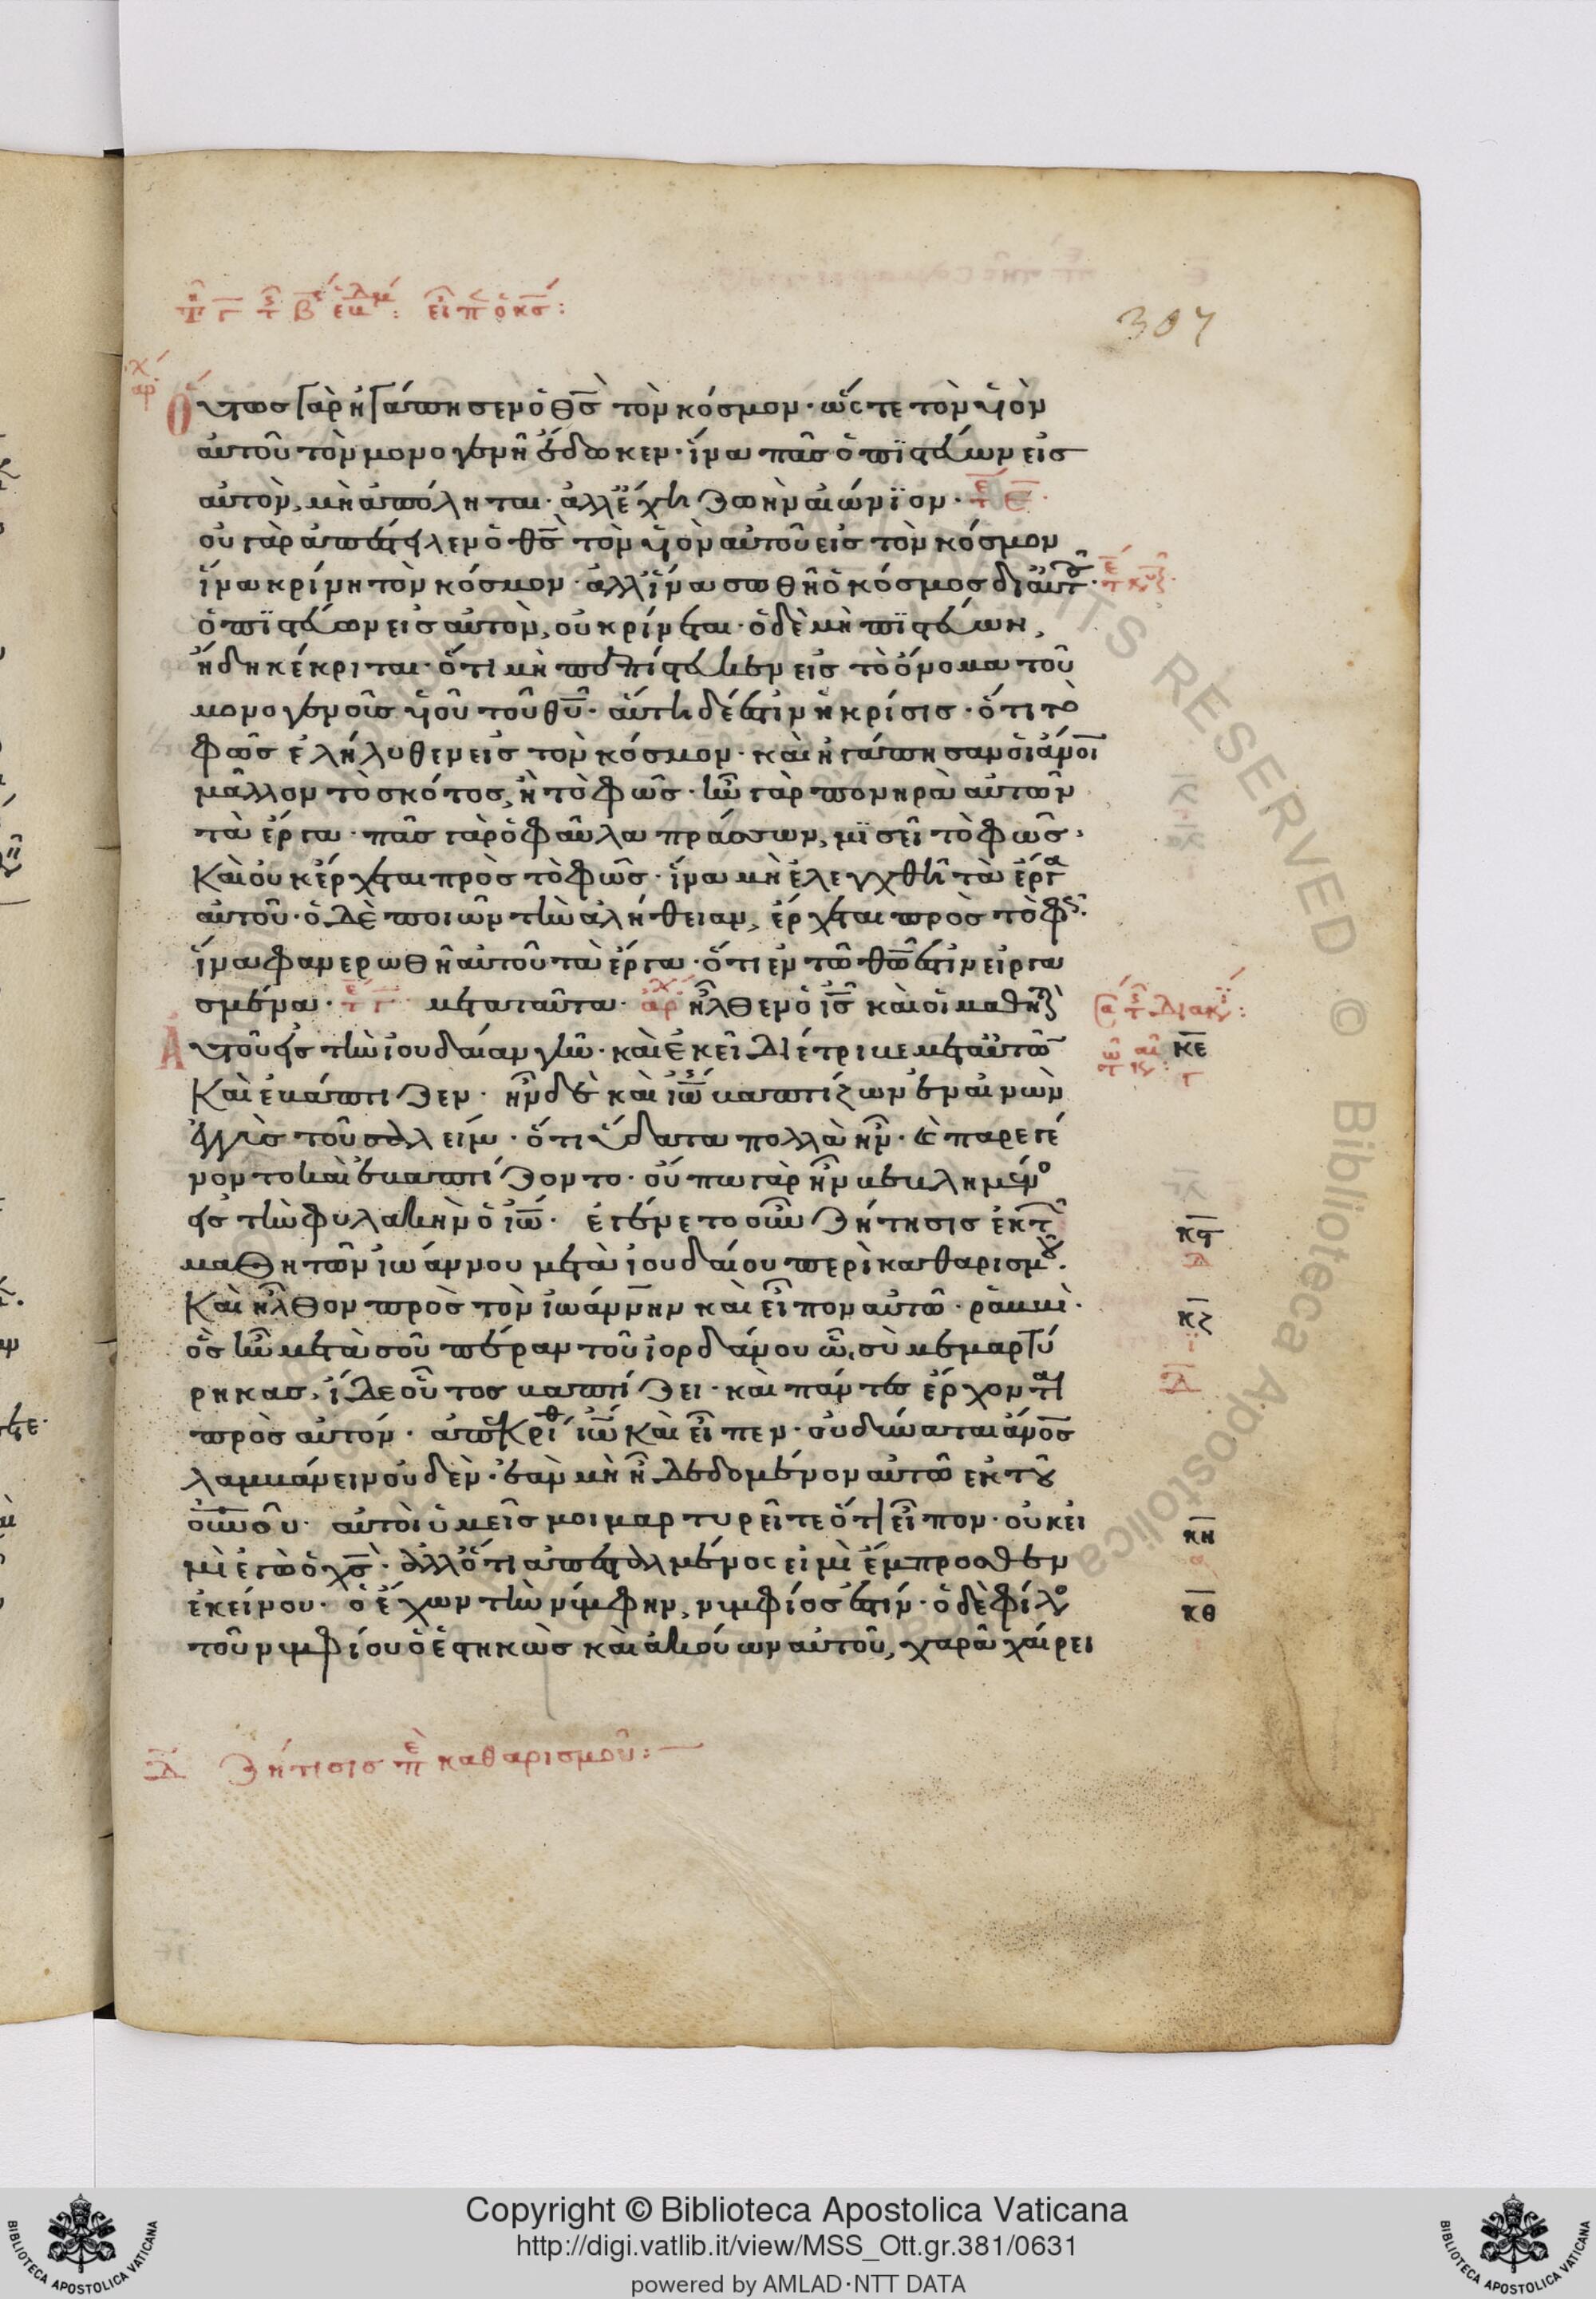 307
Οὕτως γὰρ ἠγάπησεν ὁ θς τὸν κόσμον· ὥστε τὸν υἱὸν
αὐτοῦ τὸν μονογενῆ ἔδωκεν· ἵνα πᾶς ὁ πϊστεύων εἰς
αὐτὸν, μὴ ἀπόληται· ἀλλ' ἔχη ζωὴν αἰώνϊον·
οὐ γὰρ ἀπέστειλεν ὁ θς τὸν υἱὸν αὐτοῦ εἰς τὸν κόσμον
ἵνα κρίνη τὸν κόσμον· ἀλλ' ἵνα σωθῆ ὁ κόσμος δι' αὐτοῦ·
ὁ πϊστεύων εἰς αὐτὸν, οὐ κρίνεται· ὁ δὲ μὴ πϊστεύων,
ἤδη κέκριται· ὅτι μὴ πεπίστευκεν εἰς τὸ ὄνομα τοῦ
μονογενοῦς υἱοῦ τοῦ θυ· αὕτη δέ ἐστιν ἡ κρίσις· ὅτι τὸ
φῶς ἐλήλυθεν εἰς τὸν κόσμον· καὶ ἠγάπησαν οἱ ἄνοι
μᾶλλον τὸ σκότος, ἢ τὸ φῶς· ἦν γὰρ πονηρὰ αὐτῶν
τὰ ἔργα· πᾶς γὰρ ὁ φαῦλα πράσσων, μϊσεῖ τὸ φῶς·
Καὶ οὐκ ἔρχεται πρὸς τὸ φῶς· ἵνα μὴ ἐλεγχθῆ τὰ ἔργα
αὐτοῦ· ὁ δὲ ποιῶν τὴν ἀλήθειαν, ἔρχεται πρὸς τὸ φῶς·
ἵνα φανερωθῆ αὐτοῦ τὰ ἔργα· ὅτι ἐν τῶ θω ἐστὶν εἰργα
σμένα· μετα ταῦτα· ἀρχ ἦλθεν ὁ ις καὶ οἱ μαθηταὶ
Αὐτοῦ εἰς τὴν ἰουδαίαν γῆν· καὶ ἐκεῖ διέτριβε μετ' αὐτῶν
κε
γ
Καὶ ἐβάπτιζεν· ἦν δὲ καὶ ἰω βαπτίζων ἐν αἰνὼν
ἐγγὺς τοῦ σαλείμ· ὅτι ὕδατα πολλὰ ἦν· καὶ παρεγέ
νοντο καὶ ἐβαπτίζοντο· οὔπω γὰρ ἦν βεβλημένο
εἰς τὴν φυλακὴν ὁ ἰω· ἐγένετο οὖν ζήτησις ἐκ τῶν
κϛ
δ
μαθητῶν ἰωάννου μετὰ ἰουδαίου περὶ καθαρισμοῦ·
Καὶ ἦλθον πρὸς τὸν ἰωάννην καὶ εἶπον αὐτῶ· ῥαββὶ·
κζ
ὃς ἦν μετὰ σοῦ πέραν τοῦ ἰορδάνου ὧ, σὺ μεμαρτύ
ρηκας, ἴδε οὗτος βαπτίζει· καὶ πάντες ἔρχονται
δ
πρὸς αὐτόν· ἀπεκρίθ ἰω καὶ εἶπεν· οὐ δύναται ἄνος
λαμβάνειν οὐδὲν· ἐὰν μὴ ἦ δεδομένον αὐτῶ ἐκ τοῦ
οὐνου· αὐτοὶ ὑμεῖς μοι μαρτυρεῖτε ὅτι εἶπον· οὐκ εἰ
κη
μὶ ἐγὼ ὁ χς· ἀλλ' ὅτι ἀπεσταλμένος εἰμὶ ἔμπροσθεν
ἐκείνου· ὁ ἔχων τὴν νύμφην, νυμφίος ἐστίν· ὁ δὲ φίλο
κθ
τοῦ νυμφίου ὁ ἑστηκὼς καὶ ἀκούων αὐτοῦ, χαρᾶ χαίρει
δ ζήτισις πε καθαρισμοῦ:
Copyright © Biblioteca Apostolica Vaticana
http://digi.vatlib.it/view/MSS_Ott.gr.381/0631
powered by AMLAD·NTT DATA